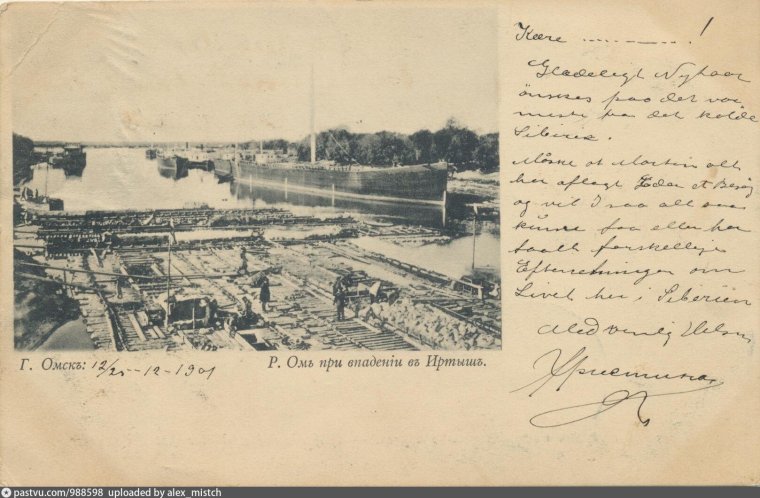 Kære ............!
Glædeligt Nytaar
önskes paa det var
meste fra det kolde
Siberie.
Måske at Martin alt
har aflagt Eder et Besög
og vil I saa alt
kunne faa eller har
faaet forskellige
Efterretninger om
Livet her i Siberien
Med venlig Hilsen
Г. Омскъ: 12/25-12-1901
Р. Омь при впаденіи въ Иртышъ.
pastvu.com/988598 uploaded by alex_mistch